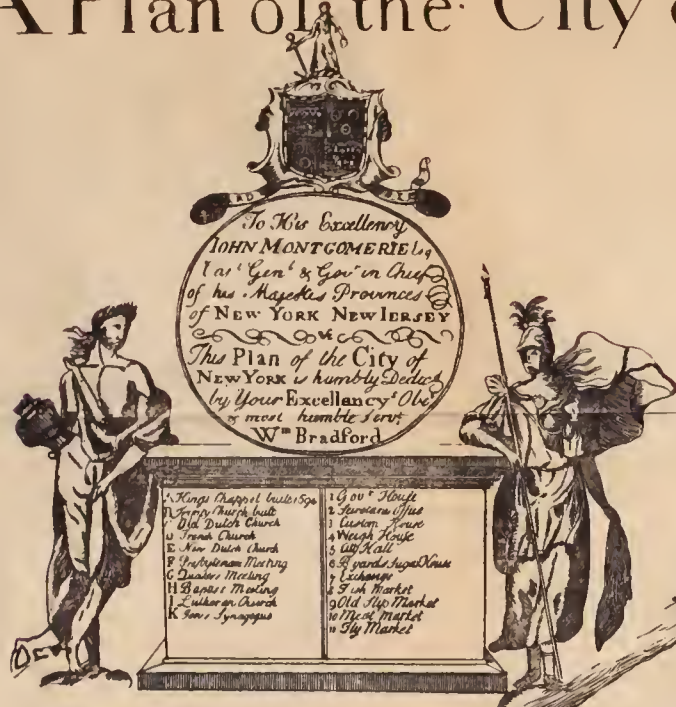 A Plan of the City
To His Excellency
JOHN MONTGOMERIE Esq
Gen.l & Gov.r in Chief
of his Majesties Provinces
of NEW YORK NEW IERSEY
&c
This Plan of the City of
NEW YORK is humbly Dedic
by Your Excellancy's Obe
& most humble Serv.t
W.m Bradford
Kings Chappel built 1694
Trinity Church built
Old Dutch Church
D French Church
E New Dutch Church
F Presbyterean Meeting
G Quakers Meeting
H Baptist Meeting
I Lutheran Church
K Jews Synagogue
1 Gov.r House
2 Secretaries Office
3 Custom House
4 Weigh House
5 City Hall
6 Byards Sugar House
7 Exchange
8 Fish Market
9 Old Slip Market
10 Meat Market
11 Fly Market